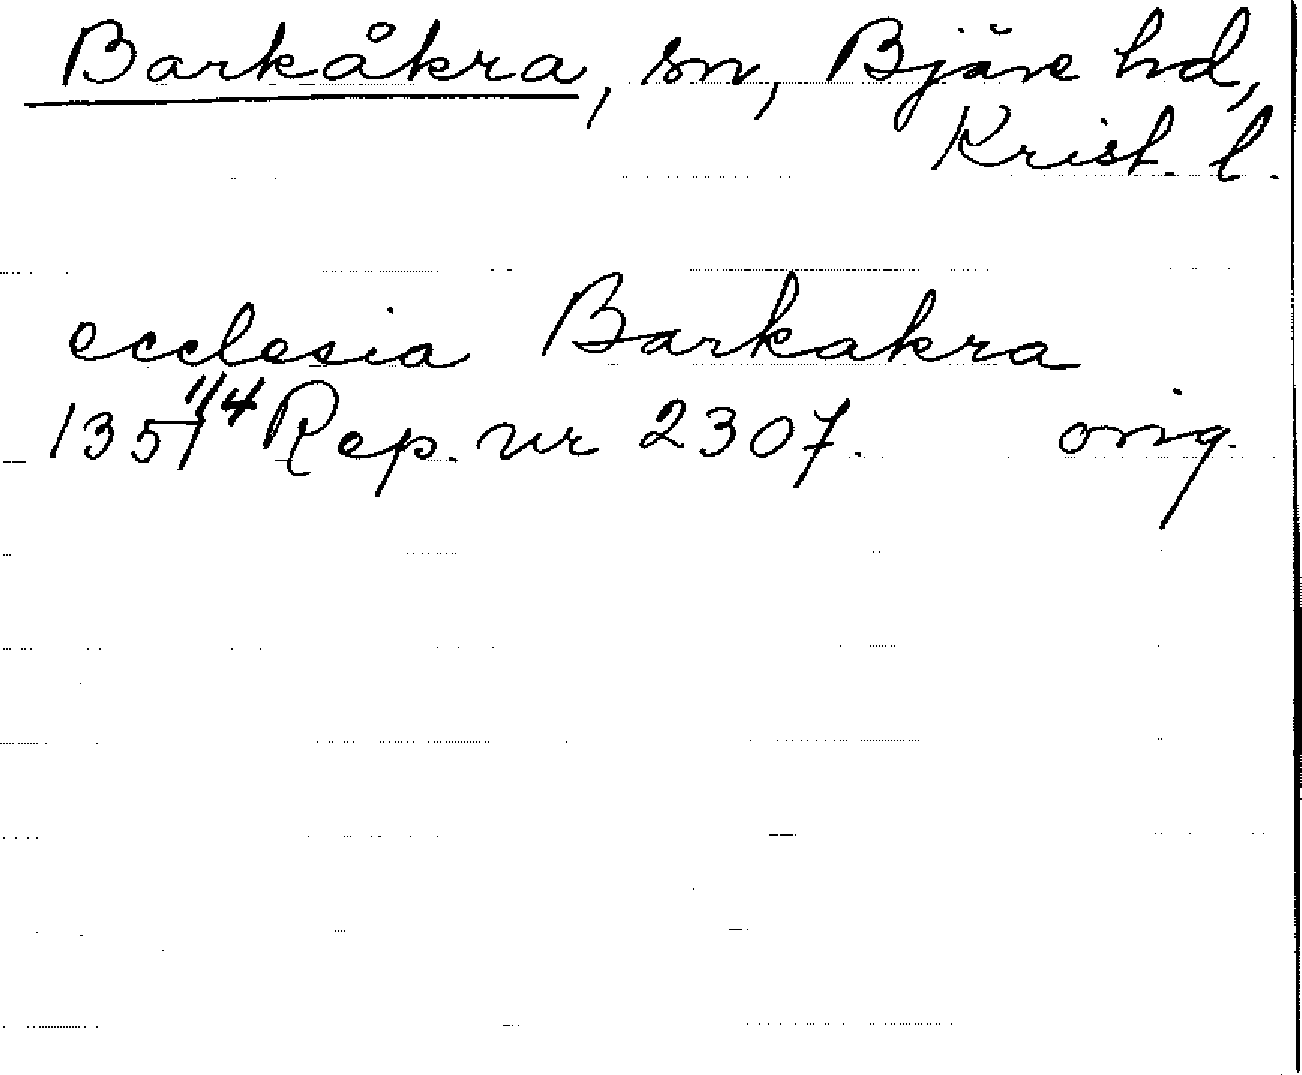 Barkåkra, sn, Bjäre hd,
Krist. l.
ecclesia Barkakra
1357 1/4 Rep. nr 2307. orig.